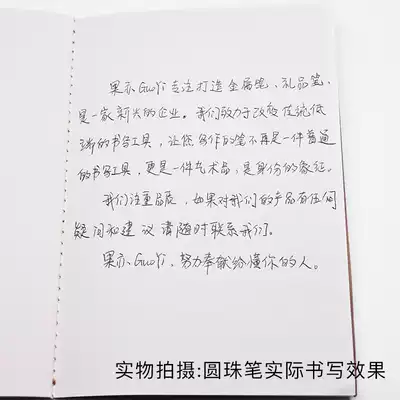 果亦GuoYi专注打造金属笔、礼品笔,
是一家新兴的企业。我们致力于改变传统低
端的书写工具，让您写作的笔不再是一件普通
的书写工具，更是一件艺术品，是身份的象征。
我们注重品质，如果对我们的产品有任何
疑问和建议请随时联系我们。
果亦GuoYi，努力奉献给懂你的人。
实物拍摄:圆珠笔实际书写效果